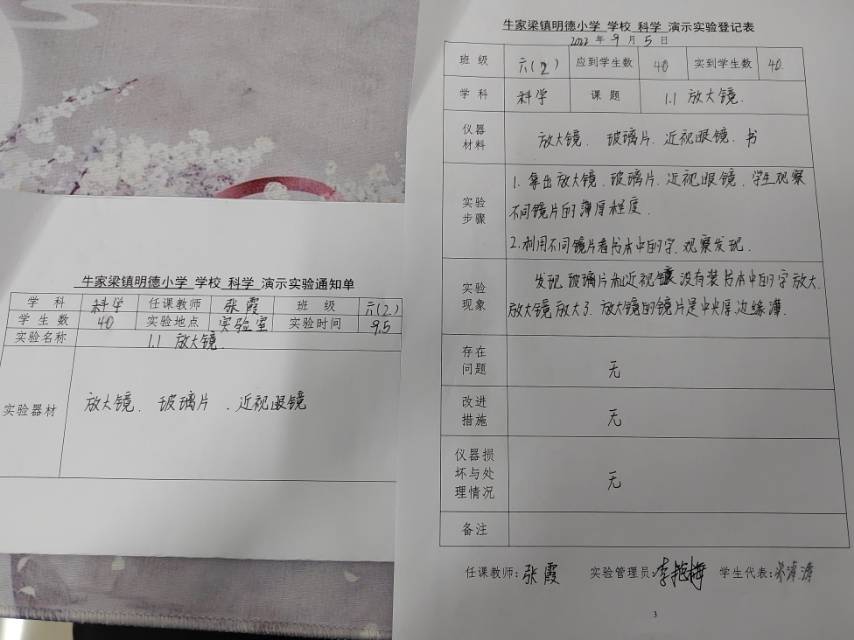 牛家梁镇明德小学 学校 科学 演示实验通知单
学 科 科学 任课教师 张霞 班 级 六(2)
学 生 数 40 实验地点 实验室 实验时间 9.5
实验名称 1.1 放大镜
实验器材 放大镜、玻璃片、近视眼镜
牛家梁镇明德小学 学校 科学 演示实验登记表
2022 年 9 月 5 日
班 级 六(2) 应到学生数 40 实到学生数 40.
学 科 科学 课 题 1.1 放大镜.
仪器
材料
放大镜、玻璃片、近视眼镜、书
实验
步骤
1. 拿出放大镜、玻璃片、近视眼镜、学生观察
不同镜片的薄厚程度.
2. 利用不同镜片看书本中的字,观察发现.
实验
现象
发现玻璃片和近视镜没有装书本中的字放大.
放大镜放大了. 放大镜的镜片是中央厚边缘薄.
存在
问题
无
改进
措施
无
仪器损
坏与处
理情况
无
备注
任课教师:张霞 实验管理员:李艳梅 学生代表:
3